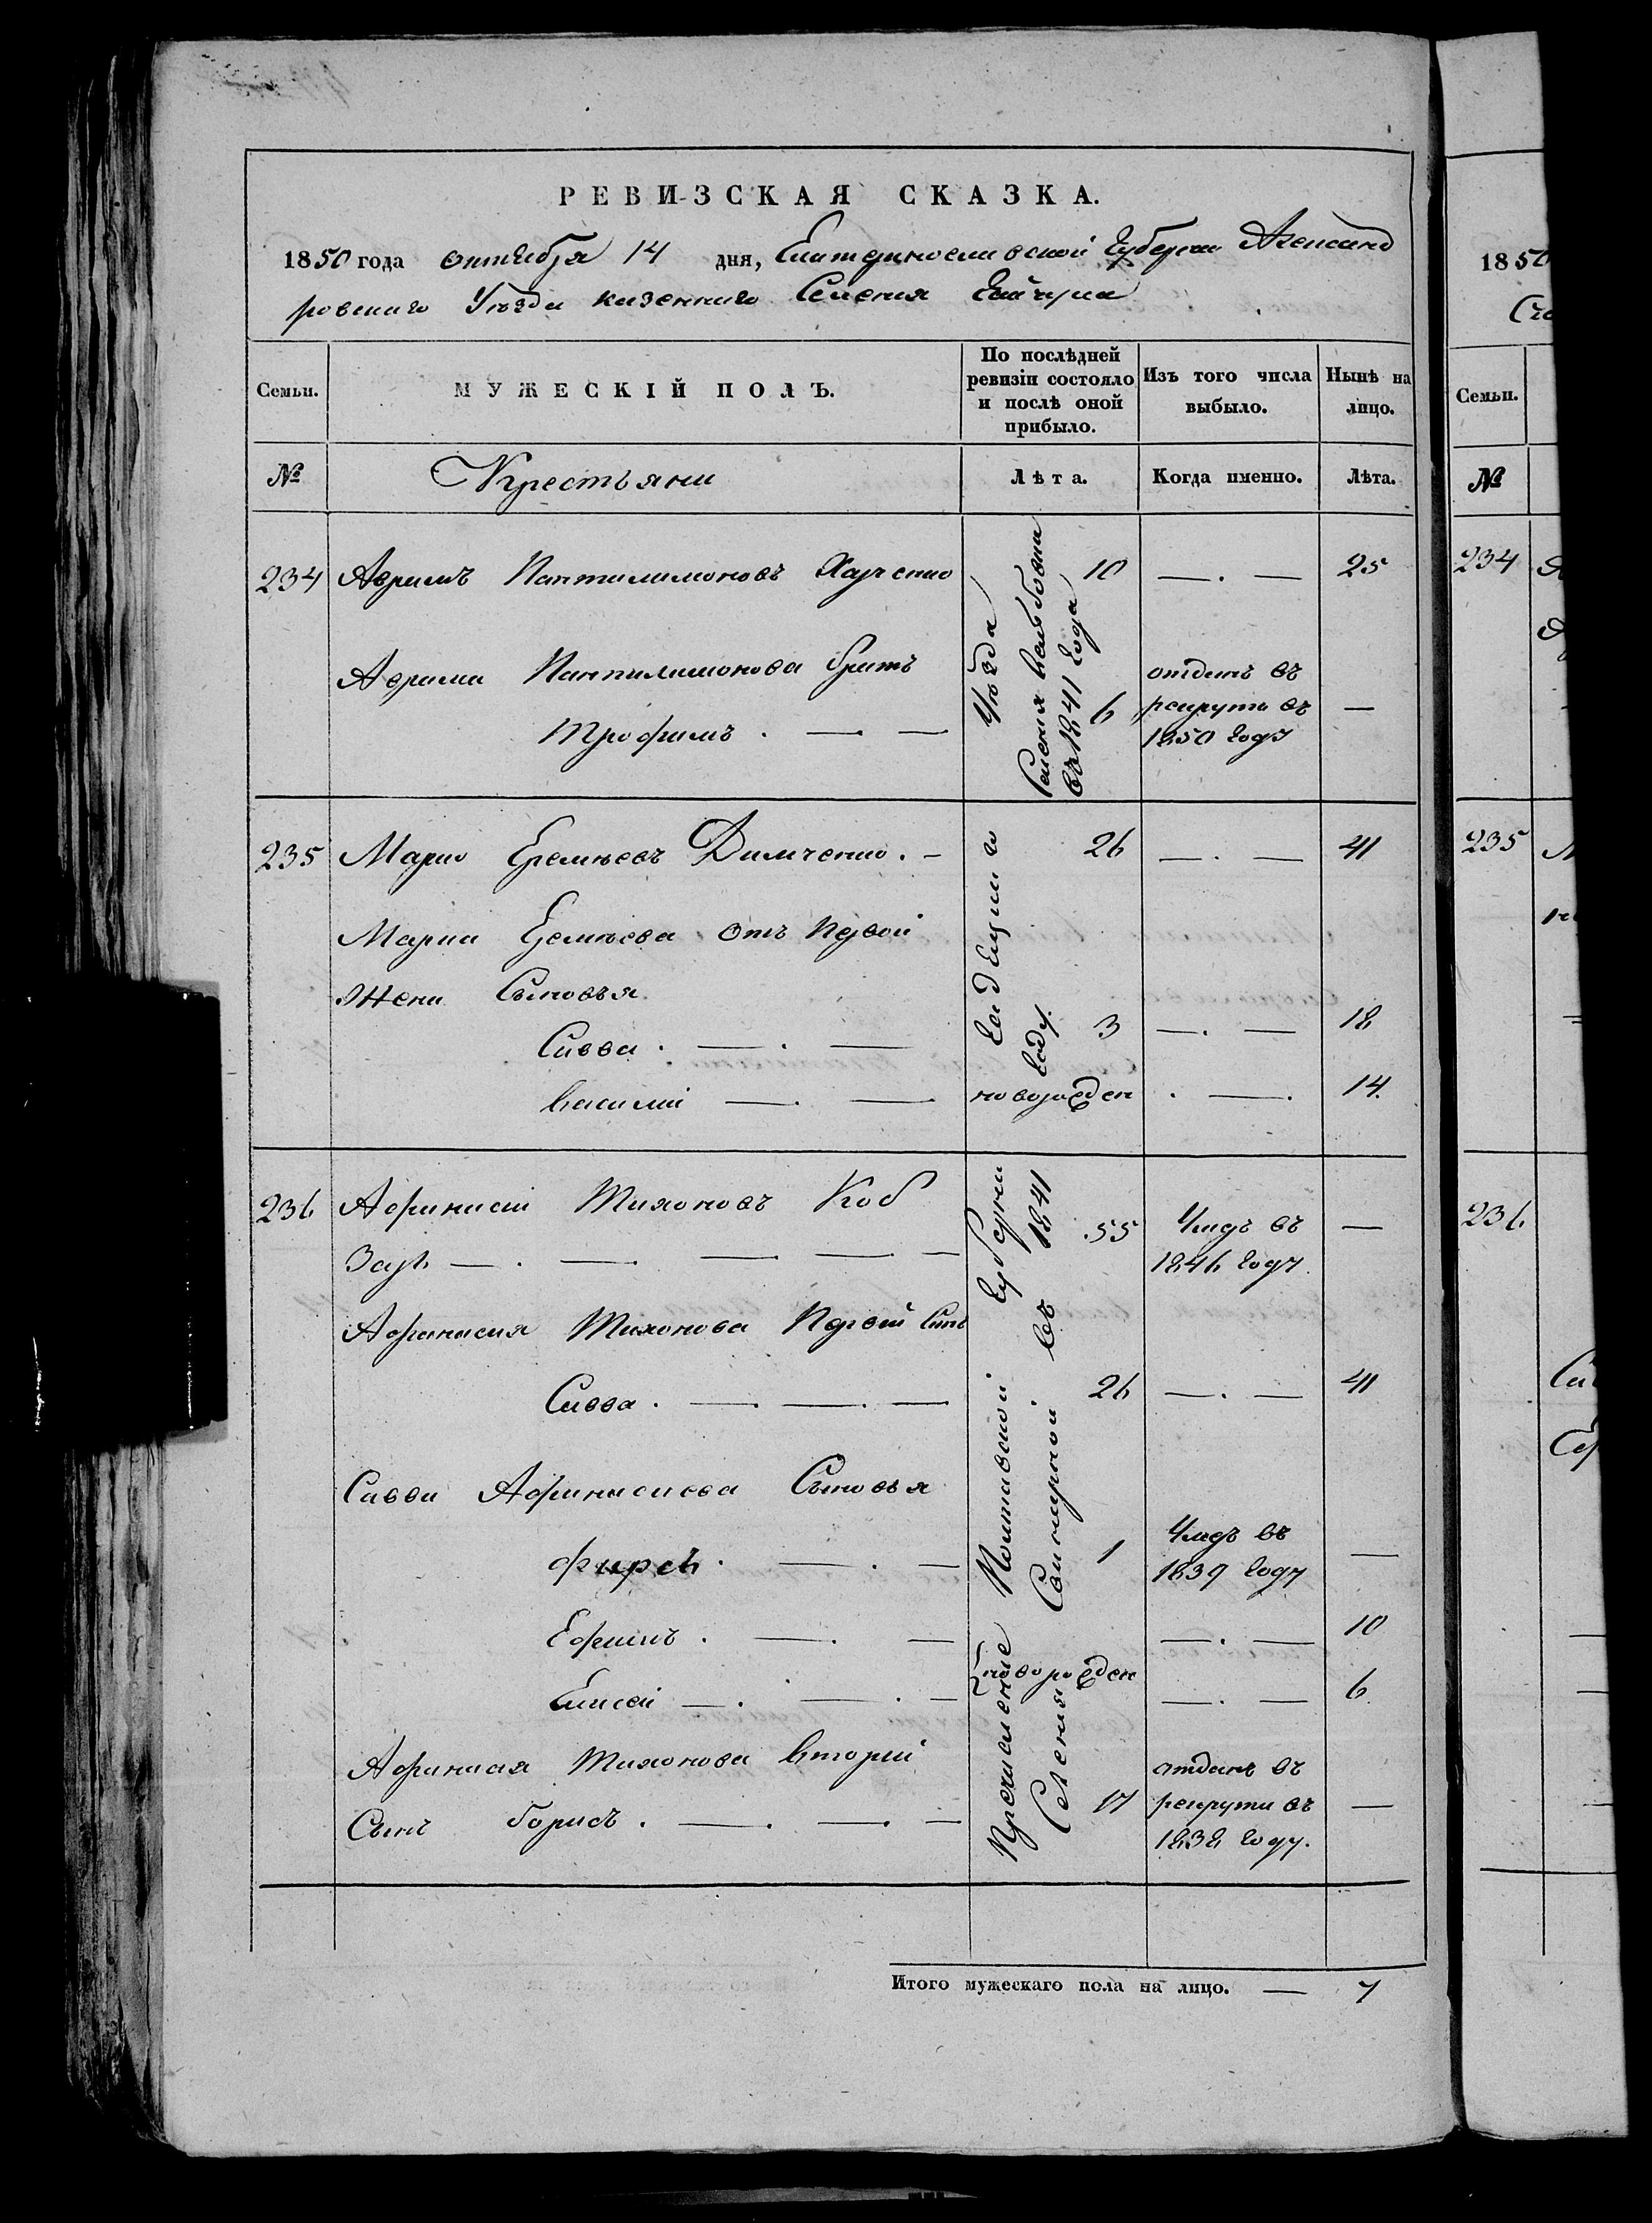 РЕВИЗСКАЯ СКАЗКА.
1850 года октября 14 дня, Екатеринославской Губернии Александ
ровскаго Уезда казеннаго Селения Гайчула
Семьи. МУЖЕСКІЙ ПОЛЪ. По послѣдней ревизіи состояло и послѣ оной прибыло. Изъ того числа выбыло. Нынѣ на лицо.
№ Крестьяни Лѣта. Когда именно. Лѣта.
234 Аврамъ Пантилимоновъ Харченко 10 — . — 25
Аврама Пантилимонова братъ
Трофимъ . — — 6 отданъ въ рекруты въ 1850 году —
235 Марко Еремѣевъ Димченко . – 26 — . — 41
Марка Еремѣева отъ первой
жени Сыновья
Савва . — . — 3 — . — 18
Василий — . — новорожден . — . 14.
236 Афанасий Тихоновъ Коб
заръ — . — . — . — . — 55 Умеръ въ 1846 году —
Афанасия Тихонова Первий Сынъ
Савва . — . — . — 26 — . — 41
Саввы Афанасиева Сыновья
Фирсъ . — . — 1 Умеръ въ 1839 году —
Ефимъ . — . — — . — 10
новорожден
Елисей — . — . — — . — 6
Афанасия Тихонова Вторий
Сынъ Борисъ . — . — . — 17 отданъ въ рекруты въ 1838 году. —
Пречисление Полтавской Губернии Гадяцкаго Уѣзда
Селения в 1841 года
Селения въ 1841 году.
Итого мужескаго пола на лицо. — 7
1850
Семьи.
№
234
235
236